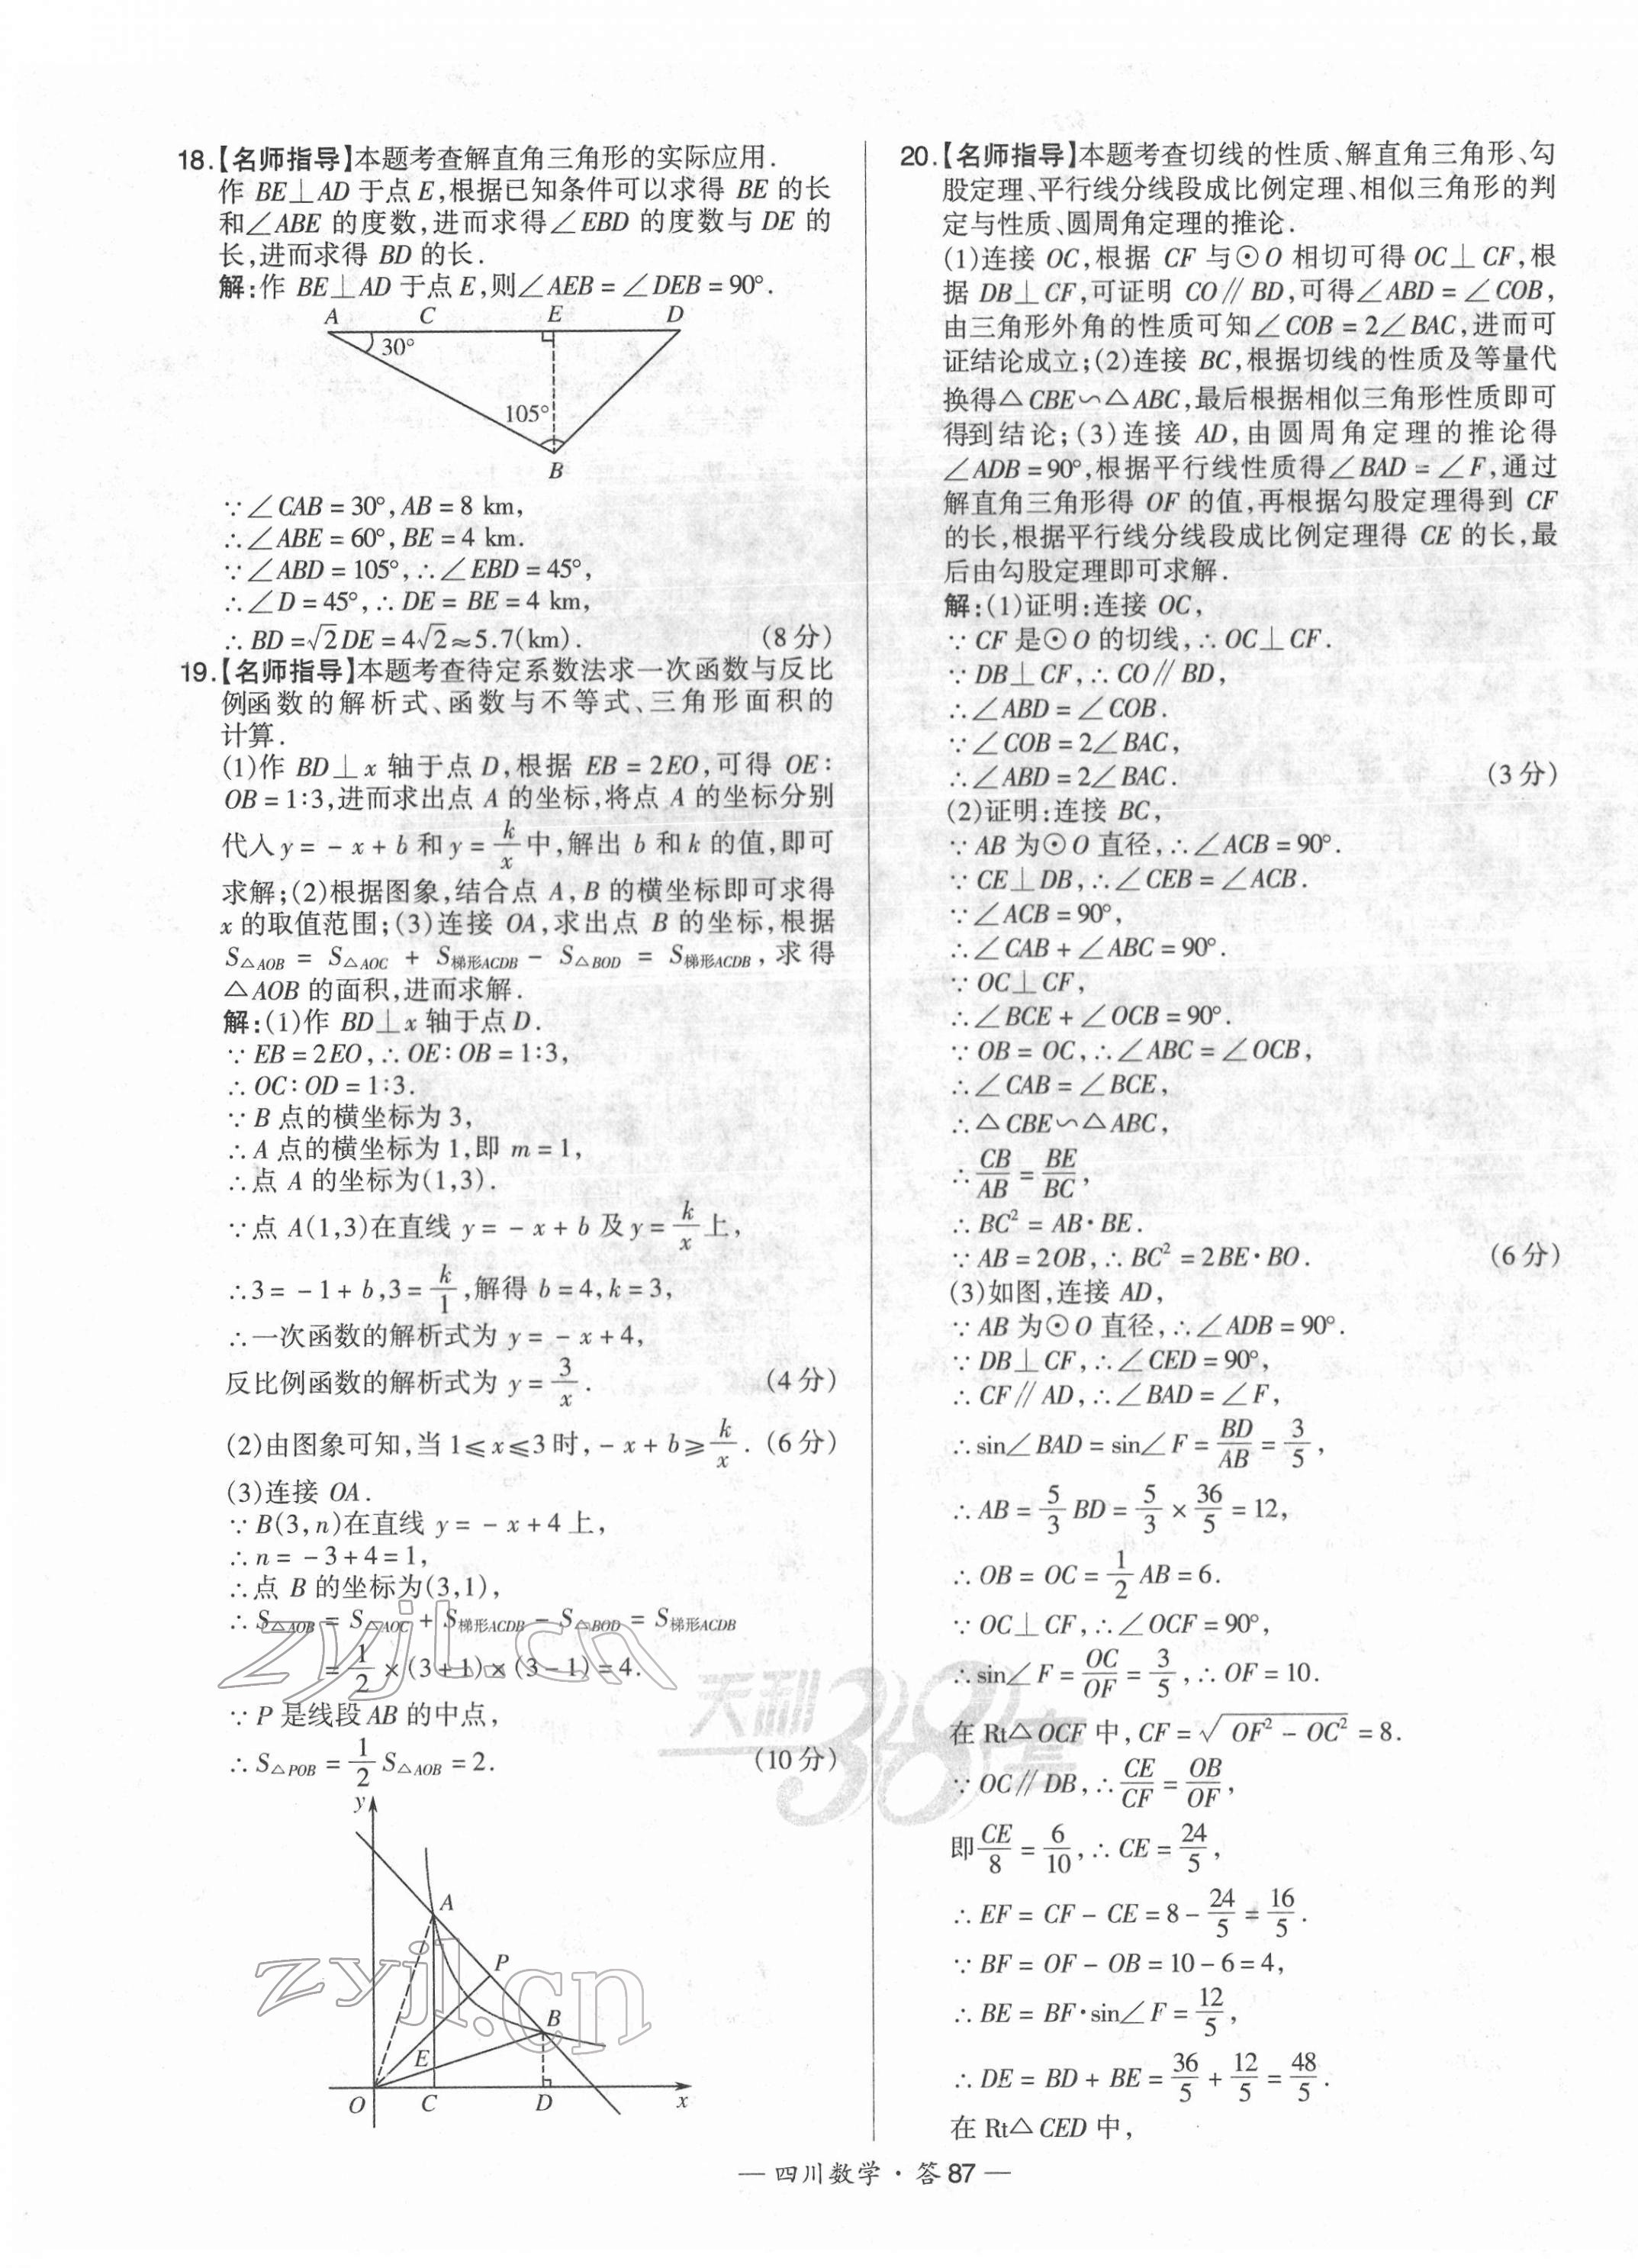 18.【名师指导】本题考查解直角三角形的实际应用.
作 BE⊥AD 于点 E,根据已知条件可以求得 BE 的长
和∠ABE 的度数,进而求得∠EBD 的度数与 DE 的
长,进而求得 BD 的长.
解:作 BE⊥AD 于点 E,则∠AEB=∠DEB=90°.
A C E D
30°
105°
B
∵∠CAB=30°,AB=8 km,
∴∠ABE=60°,BE=4 km.
∵∠ABD=105°,∴∠EBD=45°,
∴∠D=45°,∴DE=BE=4 km,
∴BD=√2DE=4√2≈5.7(km). (8分)
19.【名师指导】本题考查待定系数法求一次函数与反比
例函数的解析式、函数与不等式、三角形面积的
计算.
(1)作 BD⊥x 轴于点 D,根据 EB=2EO,可得 OE:
OB=1:3,进而求出点 A 的坐标,将点 A 的坐标分别
代入 y=-x+b 和 y=k/x 中,解出 b 和 k 的值,即可
求解;(2)根据图象,结合点 A,B 的横坐标即可求得
x 的取值范围;(3)连接 OA,求出点 B 的坐标,根据
S△AOB = S△AOC + S梯形ACDB - S△BOD = S梯形ACDB,求得
△AOB 的面积,进而求解.
解:(1)作 BD⊥x 轴于点 D.
∵EB=2EO,∴OE:OB=1:3,
∴OC:OD=1:3.
∵B 点的横坐标为 3,
∴A 点的横坐标为 1,即 m=1,
∴点 A 的坐标为(1,3).
∵点 A(1,3)在直线 y=-x+b 及 y=k/x 上,
∴3=-1+b,3=k/1,解得 b=4,k=3,
∴一次函数的解析式为 y=-x+4,
反比例函数的解析式为 y=3/x. (4分)
(2)由图象可知,当 1≤x≤3 时,-x+b≥k/x. (6分)
(3)连接 OA.
∵B(3,n)在直线 y=-x+4 上,
∴n=-3+4=1,
∴点 B 的坐标为(3,1),
∴S△AOB = S△AOC + S梯形ACDB - S△BOD = S梯形ACDB
=1/2×(3+1)×(3-1)=4.
∵P 是线段 AB 的中点,
∴S△POB=1/2 S△AOB=2. (10分)
y
A
P
B
E
O C D x
20.【名师指导】本题考查切线的性质、解直角三角形、勾
股定理、平行线分线段成比例定理、相似三角形的判
定与性质、圆周角定理的推论.
(1)连接 OC,根据 CF 与⊙O 相切可得 OC⊥CF,根
据 DB⊥CF,可证明 CO∥BD,可得∠ABD=∠COB,
由三角形外角的性质可知∠COB=2∠BAC,进而可
证结论成立;(2)连接 BC,根据切线的性质及等量代
换得△CBE∽△ABC,最后根据相似三角形性质即可
得到结论;(3)连接 AD,由圆周角定理的推论得
∠ADB=90°,根据平行线性质得∠BAD=∠F,通过
解直角三角形得 OF 的值,再根据勾股定理得到 CF
的长,根据平行线分线段成比例定理得 CE 的长,最
后由勾股定理即可求解.
解:(1)证明:连接 OC,
∵CF 是⊙O 的切线,∴OC⊥CF.
∵DB⊥CF,∴CO∥BD,
∴∠ABD=∠COB.
∵∠COB=2∠BAC,
∴∠ABD=2∠BAC. (3分)
(2)证明:连接 BC,
∵AB 为⊙O 直径,∴∠ACB=90°.
∵CE⊥DB,∴∠CEB=∠ACB.
∵∠ACB=90°,
∴∠CAB+∠ABC=90°.
∵OC⊥CF,
∴∠BCE+∠OCB=90°.
∵OB=OC,∴∠ABC=∠OCB,
∴∠CAB=∠BCE,
∴△CBE∽△ABC,
∴CB/AB=BE/BC,
∴BC²=AB·BE.
∵AB=2OB,∴BC²=2BE·BO. (6分)
(3)如图,连接 AD,
∵AB 为⊙O 直径,∴∠ADB=90°.
∵DB⊥CF,∴∠CED=90°,
∴CF∥AD,∴∠BAD=∠F,
∴sin∠BAD=sin∠F=BD/AB=3/5,
∴AB=5/3 BD=5/3×36/5=12,
∴OB=OC=1/2 AB=6.
∵OC⊥CF,∴∠OCF=90°,
∴sin∠F=OC/OF=3/5,∴OF=10.
在 Rt△OCF 中,CF=√(OF²-OC²)=8.
∵OC∥DB,∴CE/CF=OB/OF,
即CE/8=6/10,∴CE=24/5,
∴EF=CF-CE=8-24/5=16/5.
∵BF=OF-OB=10-6=4,
∴BE=BF·sin∠F=12/5,
∴DE=BD+BE=36/5+12/5=48/5.
在 Rt△CED 中,
— 四川数学·答87 —
zyjl.cn
天利38套
zyjl.cn